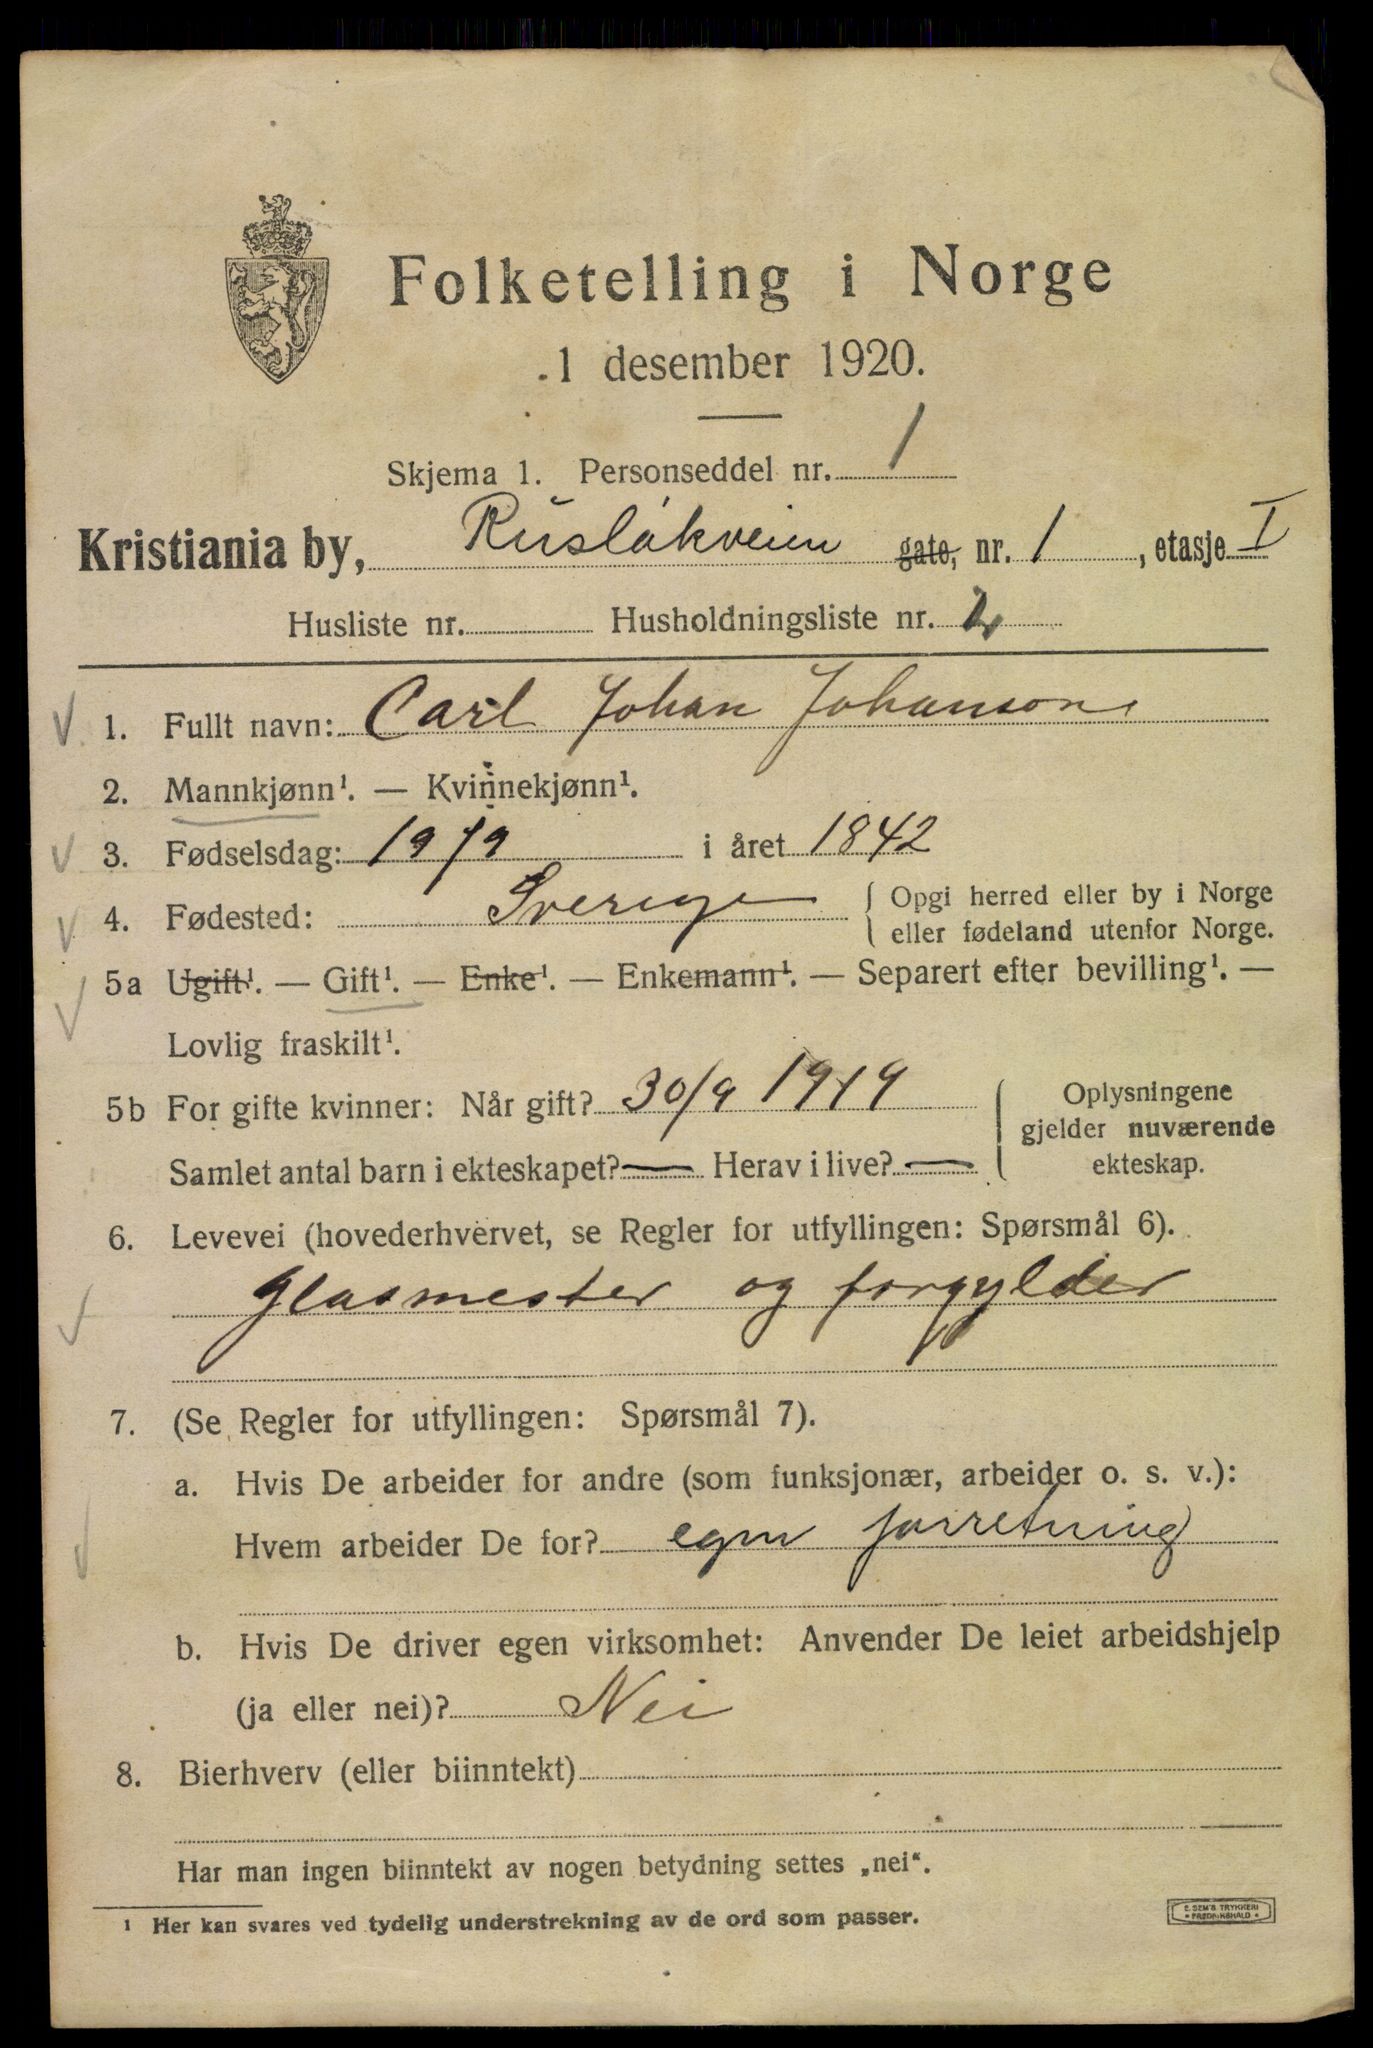 Folketelling i Norge
1 desember 1920.
Skjema 1. Personseddel nr. 1
Kristiania by, Rusløkveien gate, nr. 1, etasje I
Husliste nr. Husholdningsliste nr. 2
1. Fullt navn: Carl Johan Johanson
2. Mannkjønn¹. — Kvinnekjønn¹.
3. Fødselsdag: 19/9 i året 1842
4. Fødested: Sverige { Opgi herred eller by i Norge
eller fødeland utenfor Norge.
5a Ugift¹. — Gift¹. — Enke¹. — Enkemann¹. — Separert efter bevilling¹. —
Lovlig fraskilt¹.
5b For gifte kvinner: Når gift? 30/9 1919
Samlet antal barn i ekteskapet? — Herav i live? —
Oplysningene
gjelder nuværende
ekteskap.
6. Levevei (hovederhvervet, se Regler for utfyllingen: Spørsmål 6).
Glasmester og forgylder
7. (Se Regler for utfyllingen: Spørsmål 7).
a. Hvis De arbeider for andre (som funksjonær, arbeider o. s. v.):
Hvem arbeider De for? egen forretning
b. Hvis De driver egen virksomhet: Anvender De leiet arbeidshjelp
(ja eller nei)? Nei
8. Bierhverv (eller biinntekt)
Har man ingen biinntekt av nogen betydning settes „nei“.
¹ Her kan svares ved tydelig understrekning av de ord som passer.
E. SEM'S TRYKKERI
• FREDRIKSHALD •